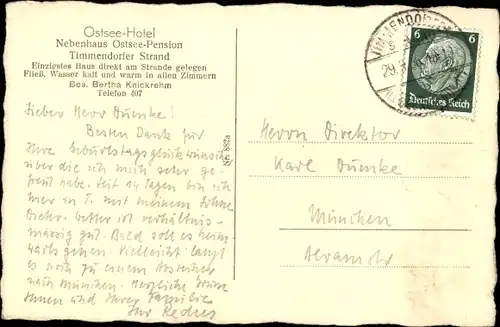 Ostsee-Hotel
Nebenhaus Ostsee-Pension
Timmendorfer Strand
Einzigstes Haus direkt am Strande gelegen
Fließ. Wasser kalt und warm in allen Zimmern
Bes. Bertha Knickrehm
Telefon 407
Lieber Herr Dumke!
Besten Dank für
Ihre Geburtstagsglückwünsche
über die ich mich sehr ge-
freut habe. Seit 14 Tagen bin ich
hier in T. mit meinem Sohne
Dieter. Wetter ist verhältnis-
mässig gut. Bald soll es heim-
wärts gehen. Vielleicht langt
es noch zu einem Abstecher
nach München. Herzliche Grüsse
Ihnen und Ihrer Familie
Ihr
Nr. 882a
Herrn Direktor
Karl Dumke
München
6 6
Deutsches Reich
29.